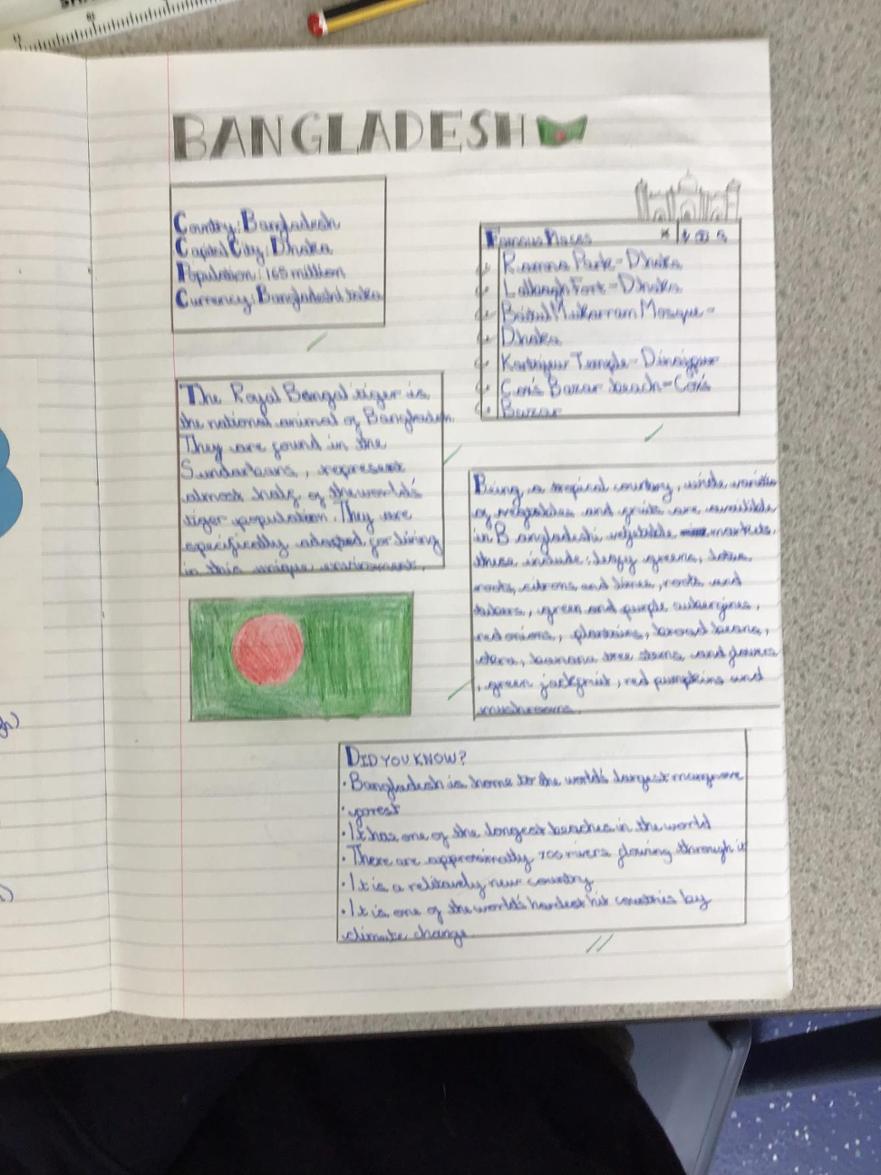 BANGLADESH
Country: Bangladesh
Capital City: Dhaka
Population: 165 million
Currency: Bangladeshi taka
Famous Places
Ramna Park - Dhaka
Lalbagh Fort - Dhaka
Baitul Mukarram Mosque -
Dhaka
Temple -
Cox's Bazar beach - Cox's
Bazar
The Royal Bengal tiger is
the national animal of Bangladesh.
They are found in the
Sundarbans, represent
almost half of the world's
tiger population. They are
specifically adapted for living
in this unique environment.
Being a tropical country, wide
of vegetables and are
in Bangladeshi vegetable markets.
these include: leafy greens, lotus
roots, citrons and limes, roots and
tubers, green and purple aubergines,
red onions, plantains, broad beans,
okra, banana tree stems and flowers
, green jackfruit, red pumpkins and
mushrooms.
DID YOU KNOW?
• Bangladesh is home to the world's largest mangrove
• forest
• It has one of the longest beaches in the world
• There are 700 rivers flowing through it
• It is a new country
• It is one of the world's hardest hit by
climate change